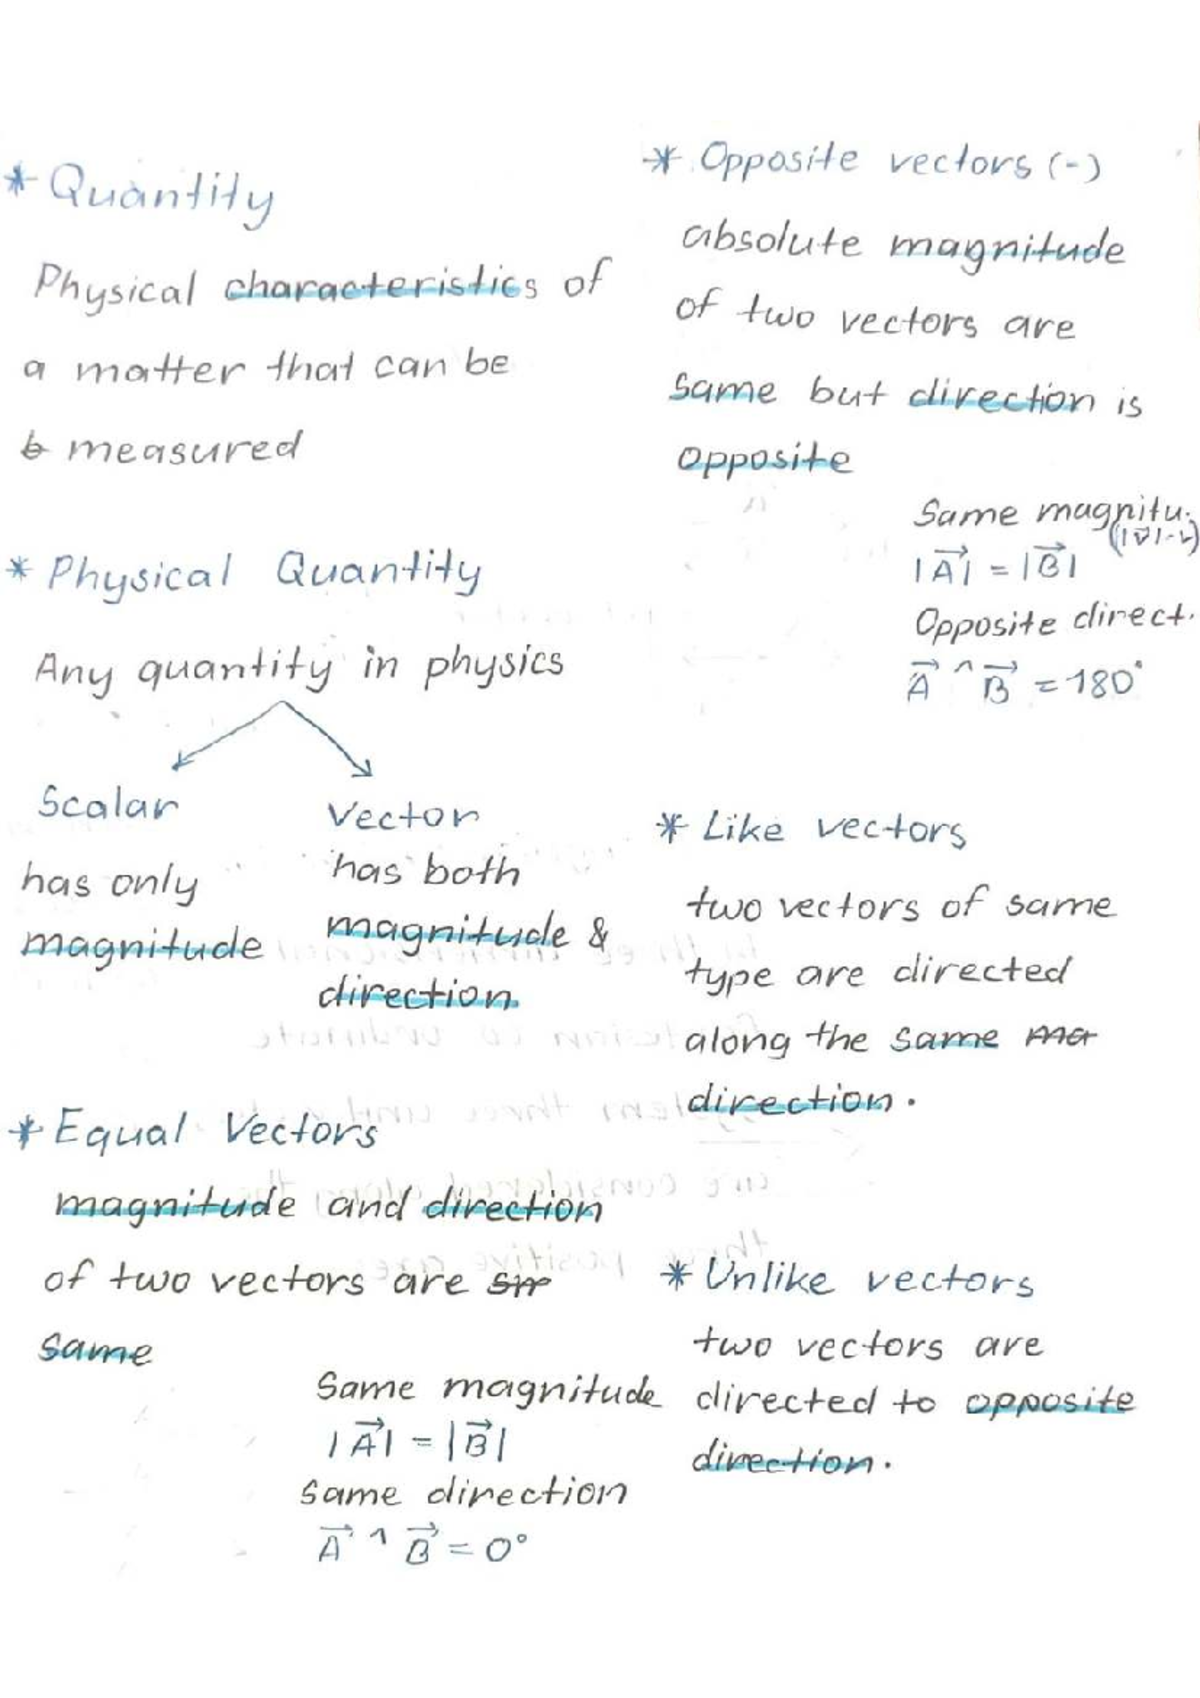 * Quantity
Physical characteristics of
a matter that can be
measured
* Physical Quantity
Any quantity in physics
Scalar
has only
magnitude
Vector
has both
magnitude &
direction
* Equal Vectors
magnitude and direction
of two vectors are
same
Same magnitude
|A⃗| = |B⃗|
Same direction
A⃗ ^ B⃗ = 0°
* Opposite vectors (-)
absolute magnitude
of two vectors are
same but direction is
opposite
Same magnitu.
|A⃗| = |B⃗|
Opposite direct.
A⃗ ^ B⃗ = 180°
* Like vectors
two vectors of same
type are directed
along the same
direction.
* Unlike vectors
two vectors are
directed to opposite
direction.